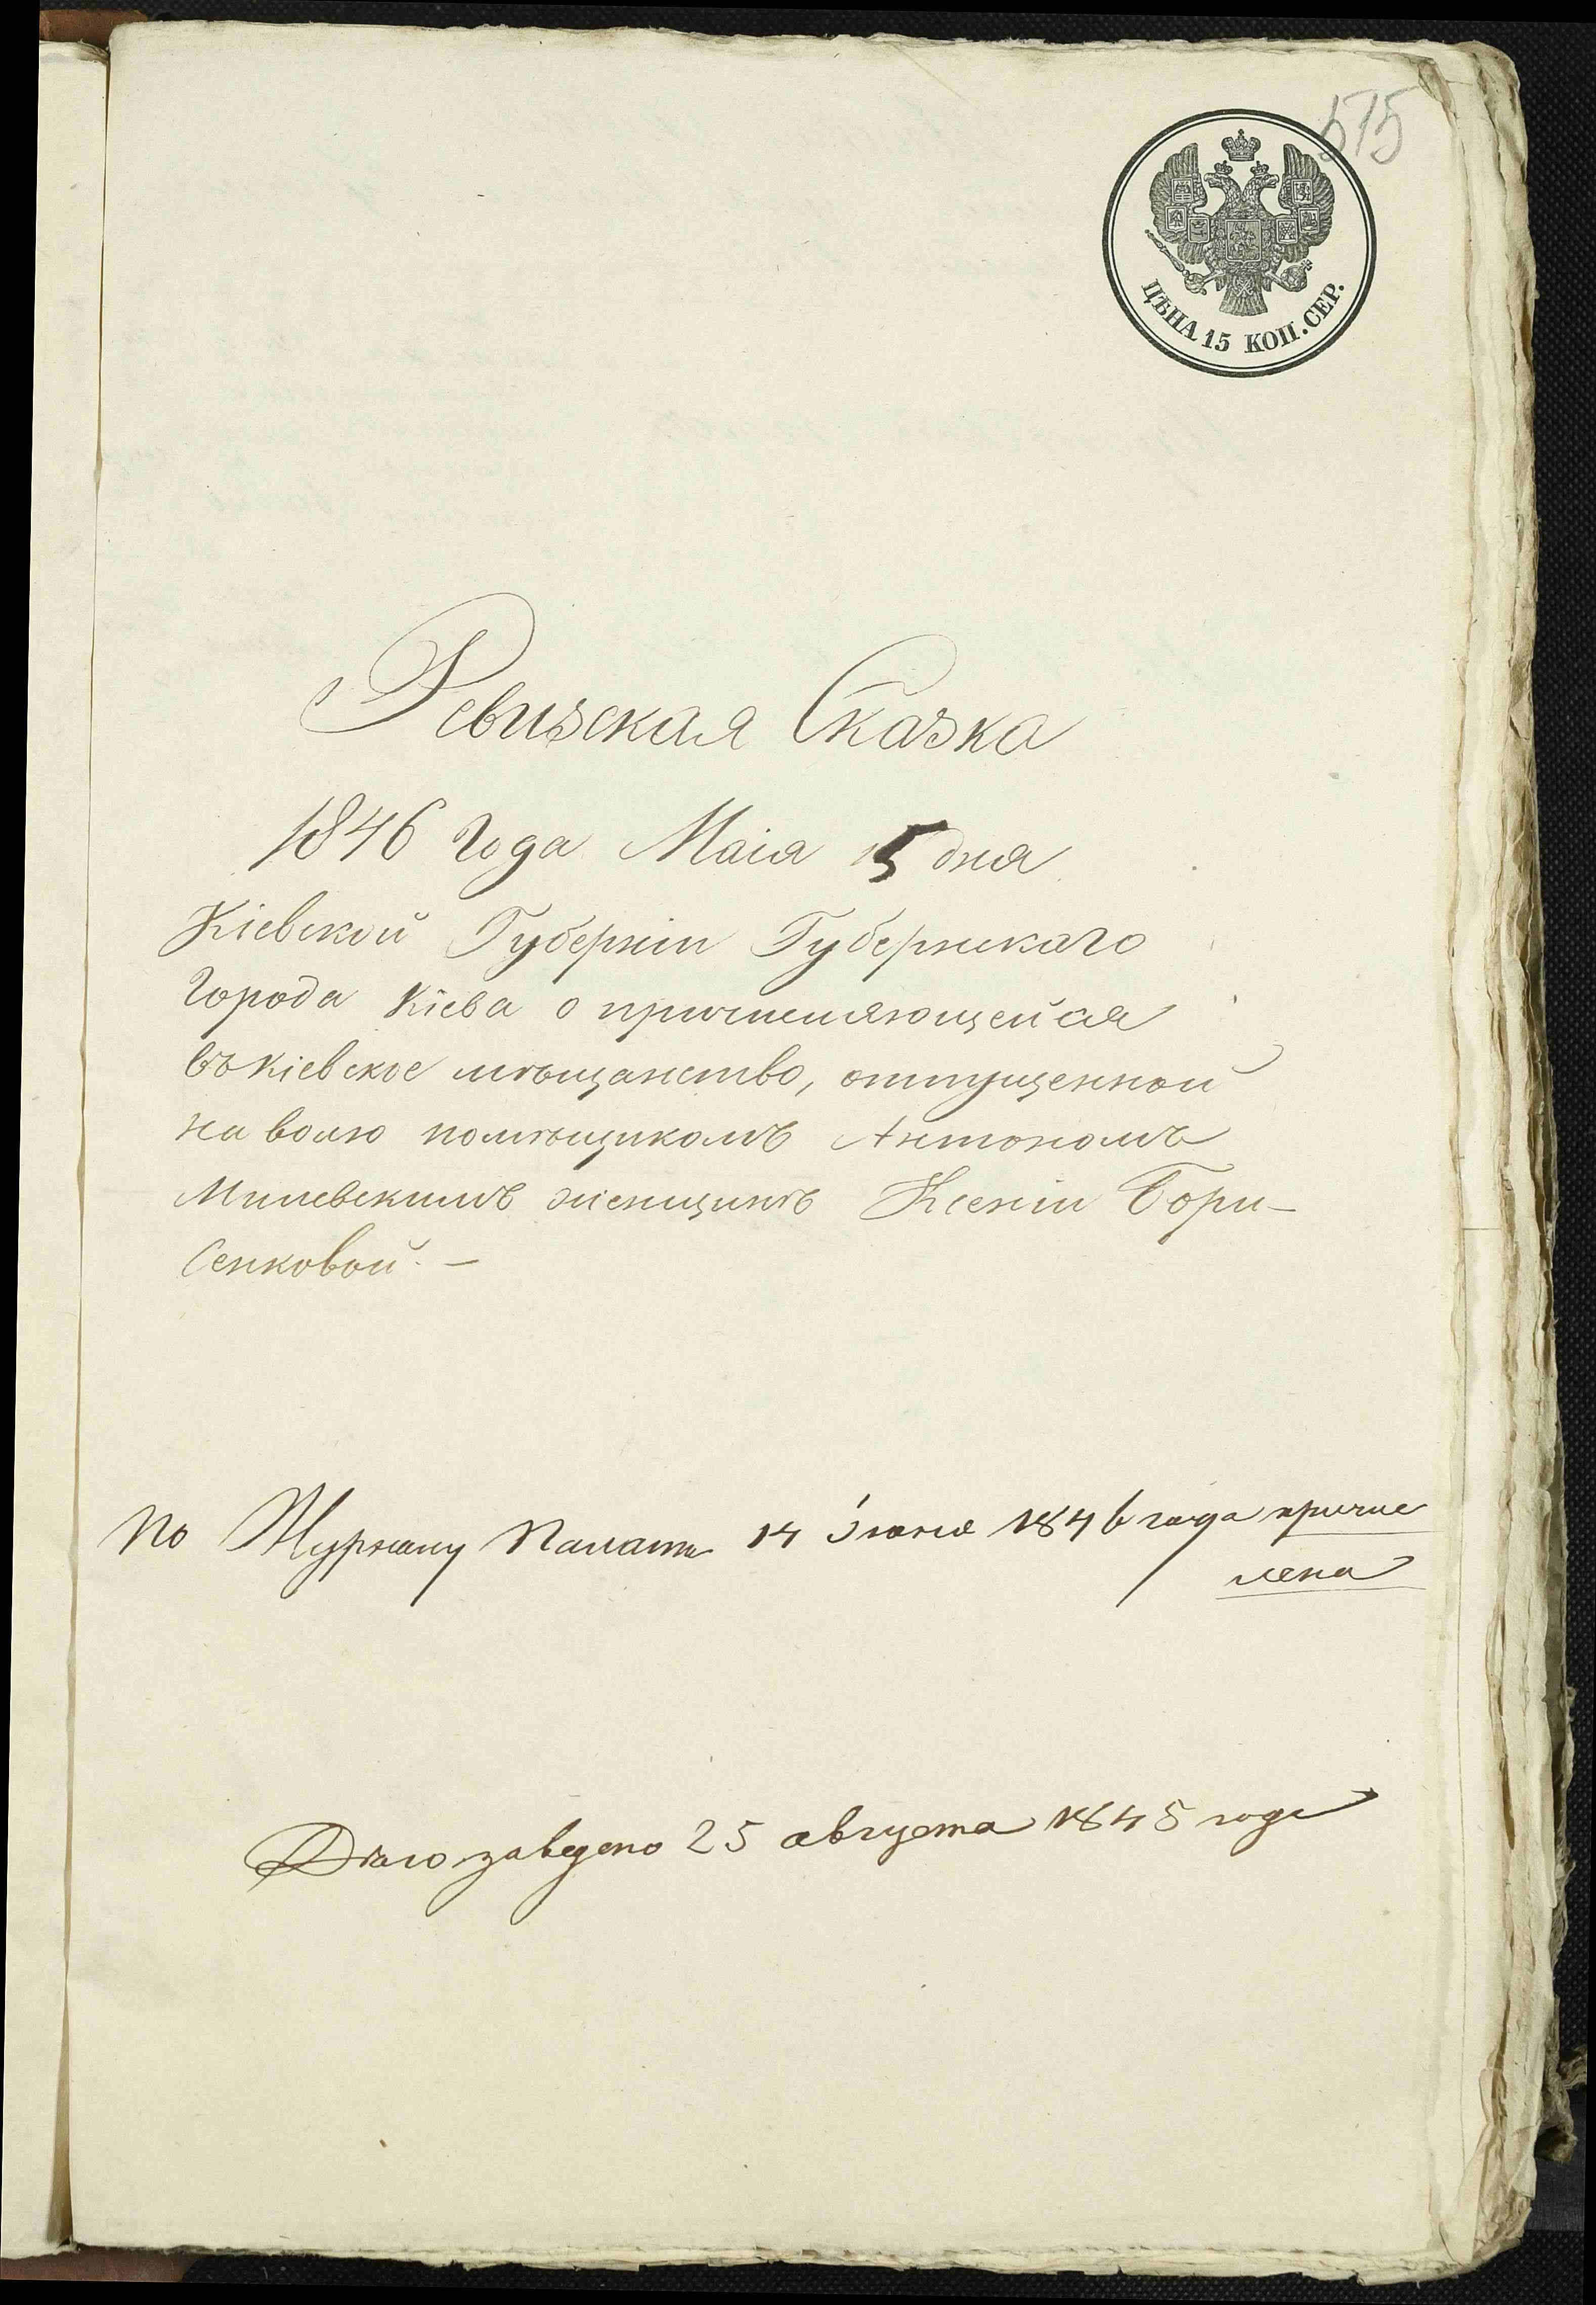 575
ЦѢНА 15 КОП. СЕР.
Ревизская Сказка
1846 Года Маія 15 дня
Кіевской Губерніи Губернскаго
Города Кіева о причисляющейся
въ Кіевское мѣщанство, отпущенной
на волю помѣщикомъ Антономъ
Милевскимъ женщинѣ Ксеніи Бори-
сенковой. —
По Журналу Палаты 14 Іюня 1846 года причис
лена
Дѣло заведено 25 августа 1845 года